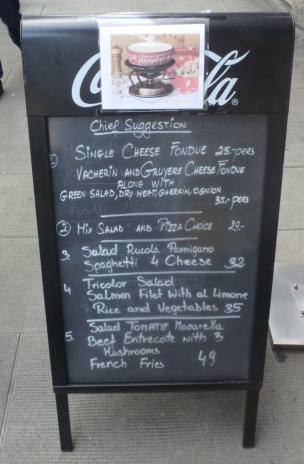 Coca-Cola®
Chief Suggestion
1 Single Cheese Fondue 25.-pers
Vacherin and Gruyere Cheese Fondue
along with
Green Salad, Dry Meat, Guerkin, Ognion
35.- pers
2 Mix Salad and Pizza Choice 29.-
3. Salad Rucola Parmigano
Spaghetti 4 Cheese 32
4 Tricolor Salad
Salmon Filet with al limone
Rice and Vegetables 35
5. Salad Tomate Mosarella
Beef Entrecote with 3
Mushrooms
French Fries 49